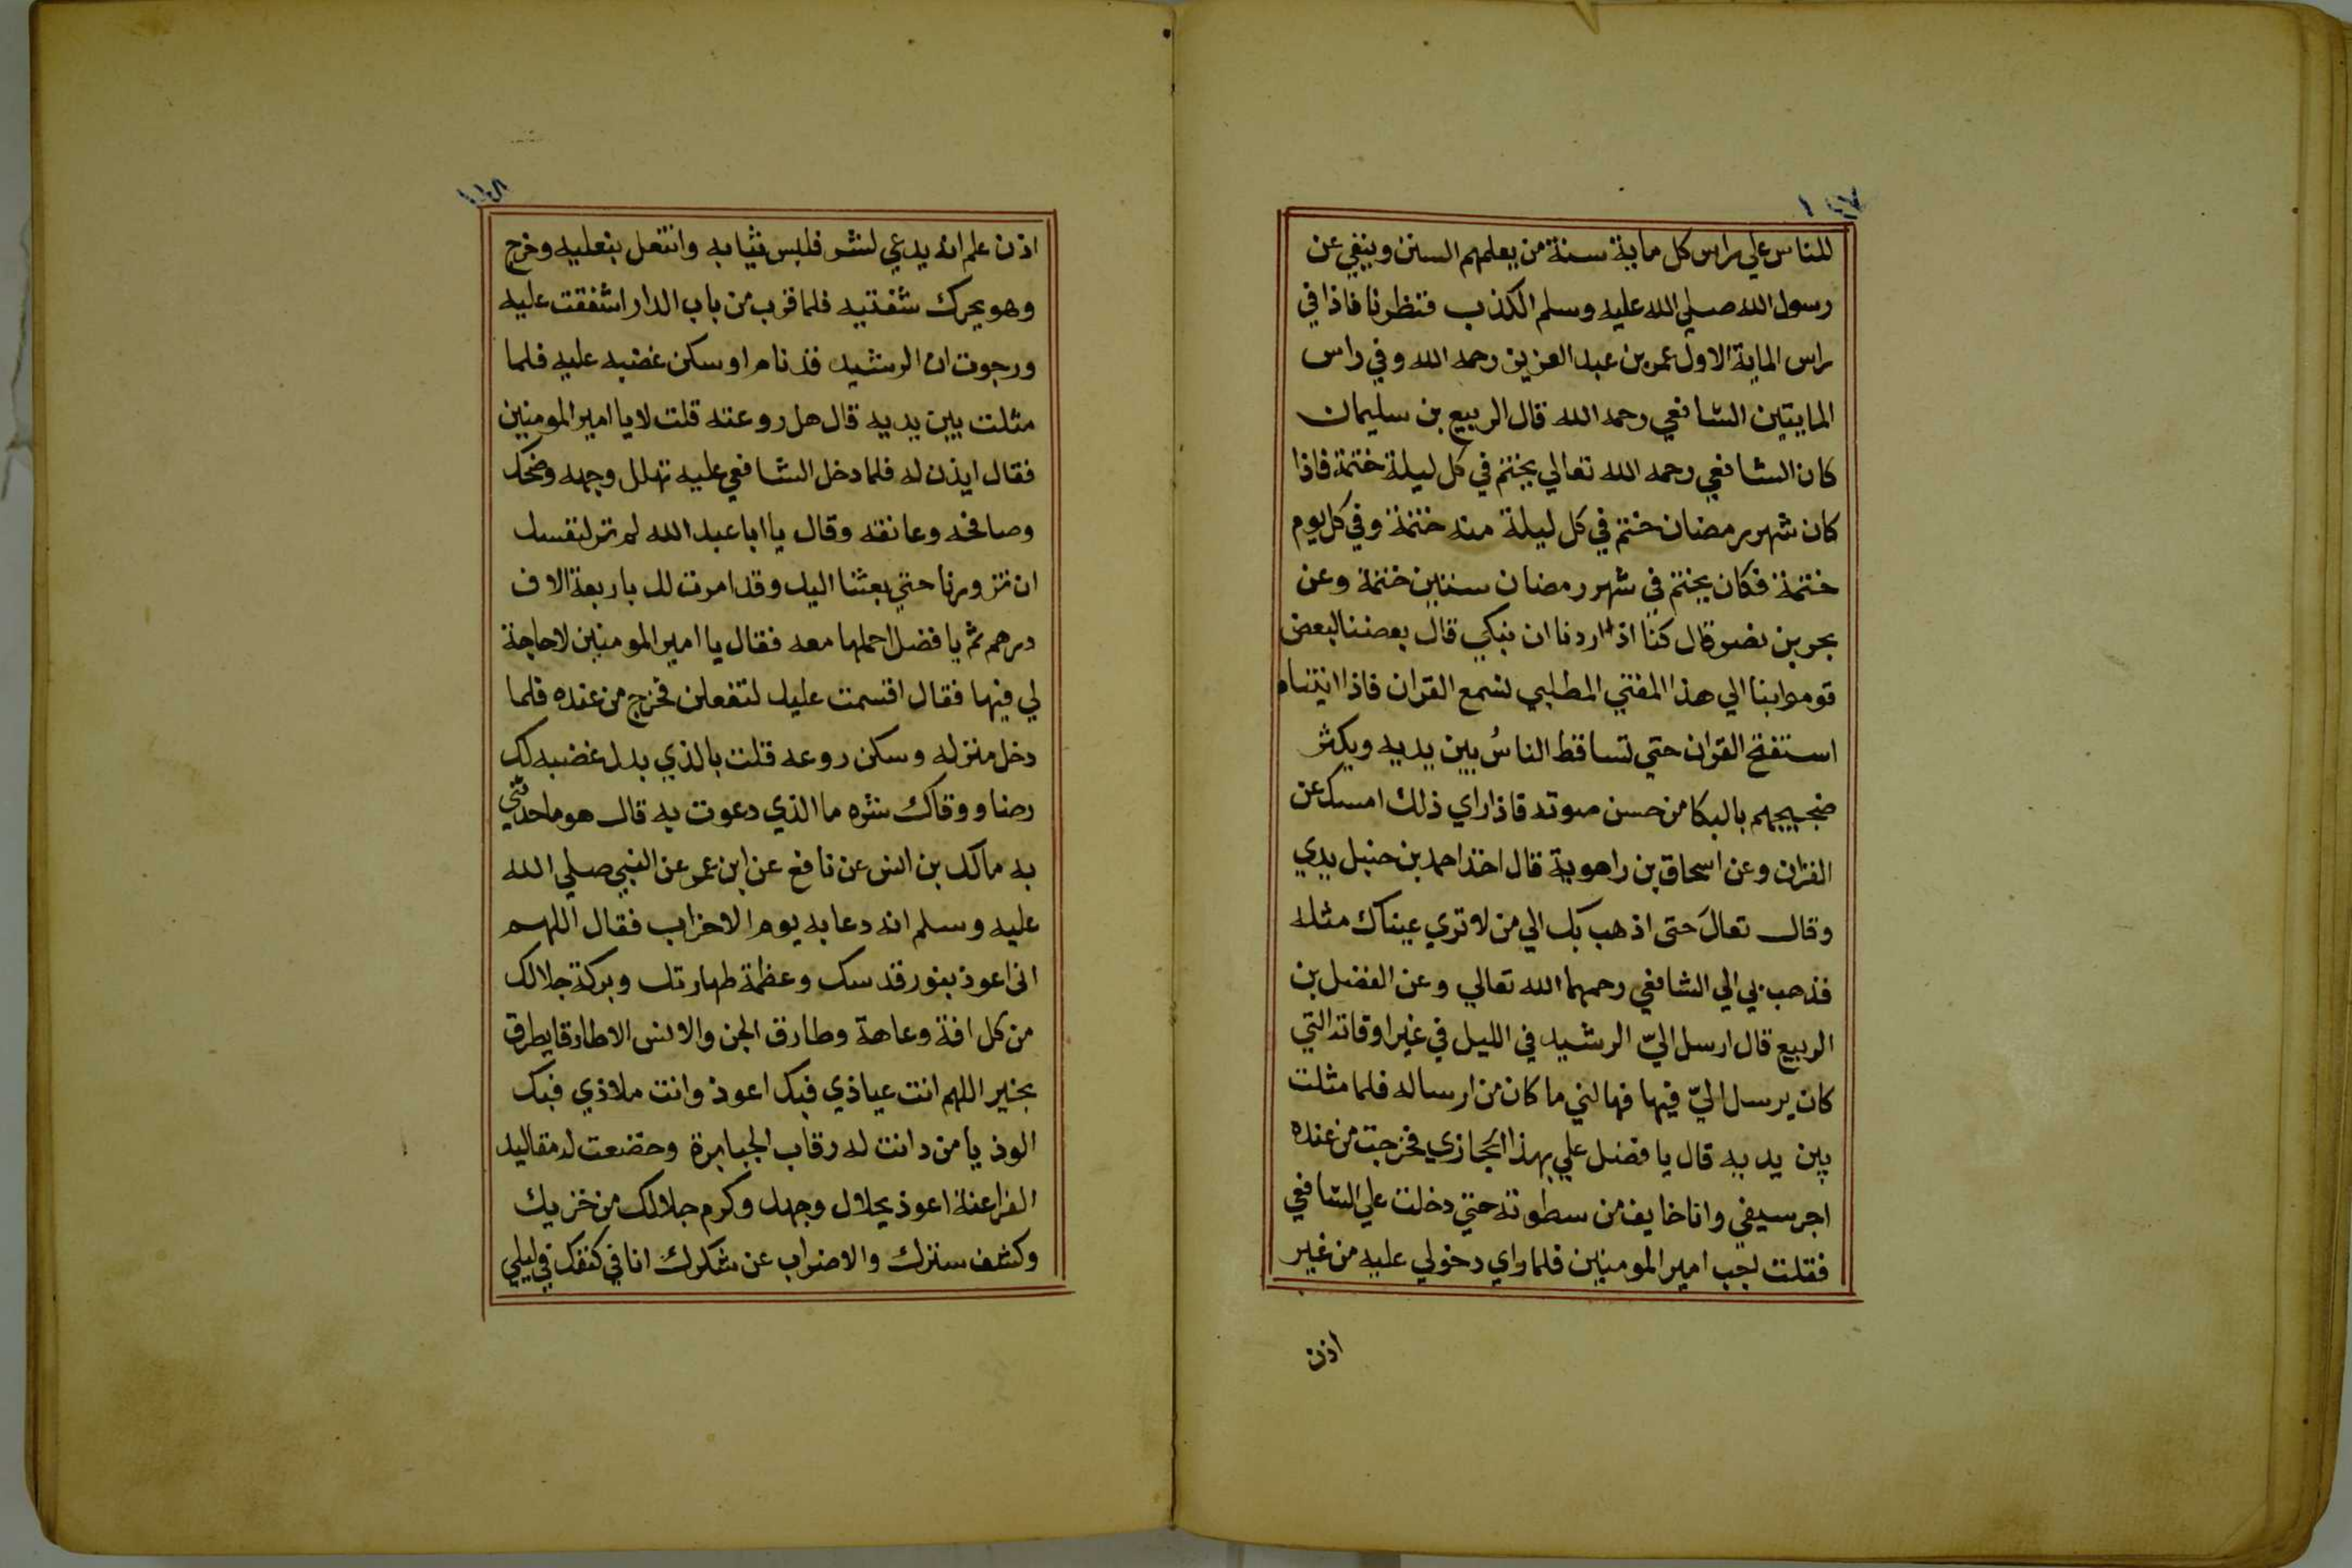 للناس علي راس كل ماية سنة من يعلمهم السنن وينفي عن
رسول الله صلي الله عليه وسلم الكذب فنظرنا فاذا في
راس الماية الاول عمر بن عبد العزيز رحمه الله وفي راس
المايتين الشافعي رحمه الله قال الربيع بن سليمان
كان الشافعي رحمه الله تعالي يختم في كل ليلة ختمة فاذا
كان شهر رمضان ختم في كل ليلة منه ختمة وفي كل يوم
ختمة فكان يختم في شهر رمضان ستين ختمة وعن
بحر بن نصر قال كنا اذا اردنا ان نبكي قال بعضنا لبعض
قوموا بنا الي هذا المفتي المطلبي نسمع القران فاذا اتيناه
استفتح القران حتي تساقط الناسُ بين يديه ويكثر
ضجيجهم بالبكا من حسن صوته فاذا راي ذلك امسك عن
القران وعن اسحاق بن راهوية قال اخذ احمد بن حنبل يدي
وقال تعالَ حتى اذهب بك الي من لا تري عيناك مثله
فذهب بي الي الشافعي رحمهما الله تعالي وعن الفضل بن
الربيع قال ارسل اليّ الرشيد في الليل في غير اوقاته التي
كان يرسل اليّ فيها فهالني ما كان من ارساله فلما مثلت
بين يديه قال يا فضل علي بهذا الحجازي فخرجت من عنده
اجر سيفي وانا خايف من سطوته حتي دخلت علي الشافعي
فقلت لجب امير المومنين فلما راي دخولي عليه من غير
اذن
١١٨
اذن علم انه يدعي لشر فلبس ثيابه وانتعل بنعليه وخرج
وهو يحرك شفتيه فلما قرب من باب الدار اشفقت عليه
ورجوت ان الرشيد قد نام او سكن غضبه عليه فلما
مثلت بين يديه قال هل روعته قلت لا يا امير المومنين
فقال ايذن له فلما دخل الشافعي عليه تهلل وجهه وضحك
وصافحه وعانقه وقال يا ابا عبد الله لم تر لنفسك
ان تزورنا حتي بعثنا اليك وقد امرت لك باربعة الاف
درهم ثم يا فضل احملها معه فقال يا امير المومنين لا حاجة
لي فيها فقال اقسمت عليك لتفعلن فخرج من عنده فلما
دخل منزله وسكن روعه قلت بالذي بدل غضبه لك
رضا ووقاك شره ما الذي دعوت به قال هو ما حدثني
به مالك بن انس عن نافع عن ابن عمر عن النبي صلي الله
عليه وسلم انه دعا به يوم الاحزاب فقال اللهم
انى اعوذ بنور قدسك وعظمة طهارتك وبركة جلالك
من كل افة وعاهة وطارق الجن والانس الا طارقا يطرق
بخير اللهم انت عياذي فبك اعوذ وانت ملاذي فبك
الوذ يا من دانت له رقاب الجبابرة وخضعت له مقاليد
الفراعنة اعوذ بجلال وجهك وكرم جلالك من خزيك
وكشف سترك والاضراب عن شكرك انا في كنفك في ليلي